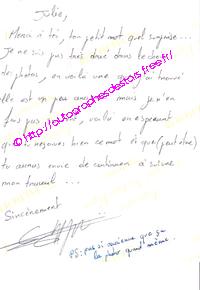 Julie,
Merci à toi, ton petit mot quel surprise...
Je ne suis pas très doué dans le choix
de photos, en voilà une que j'ai trouvé
elle est un peu mais je n'en
fais pas voilà en espérant
que tu reçoives bien ce mot et que (peut-être)
tu auras envie de continuer à suivre
mon travail...
Sincèrement
PS: pas si ancienne que ça
la photo quand même.
©http://autographesdestars.free.fr